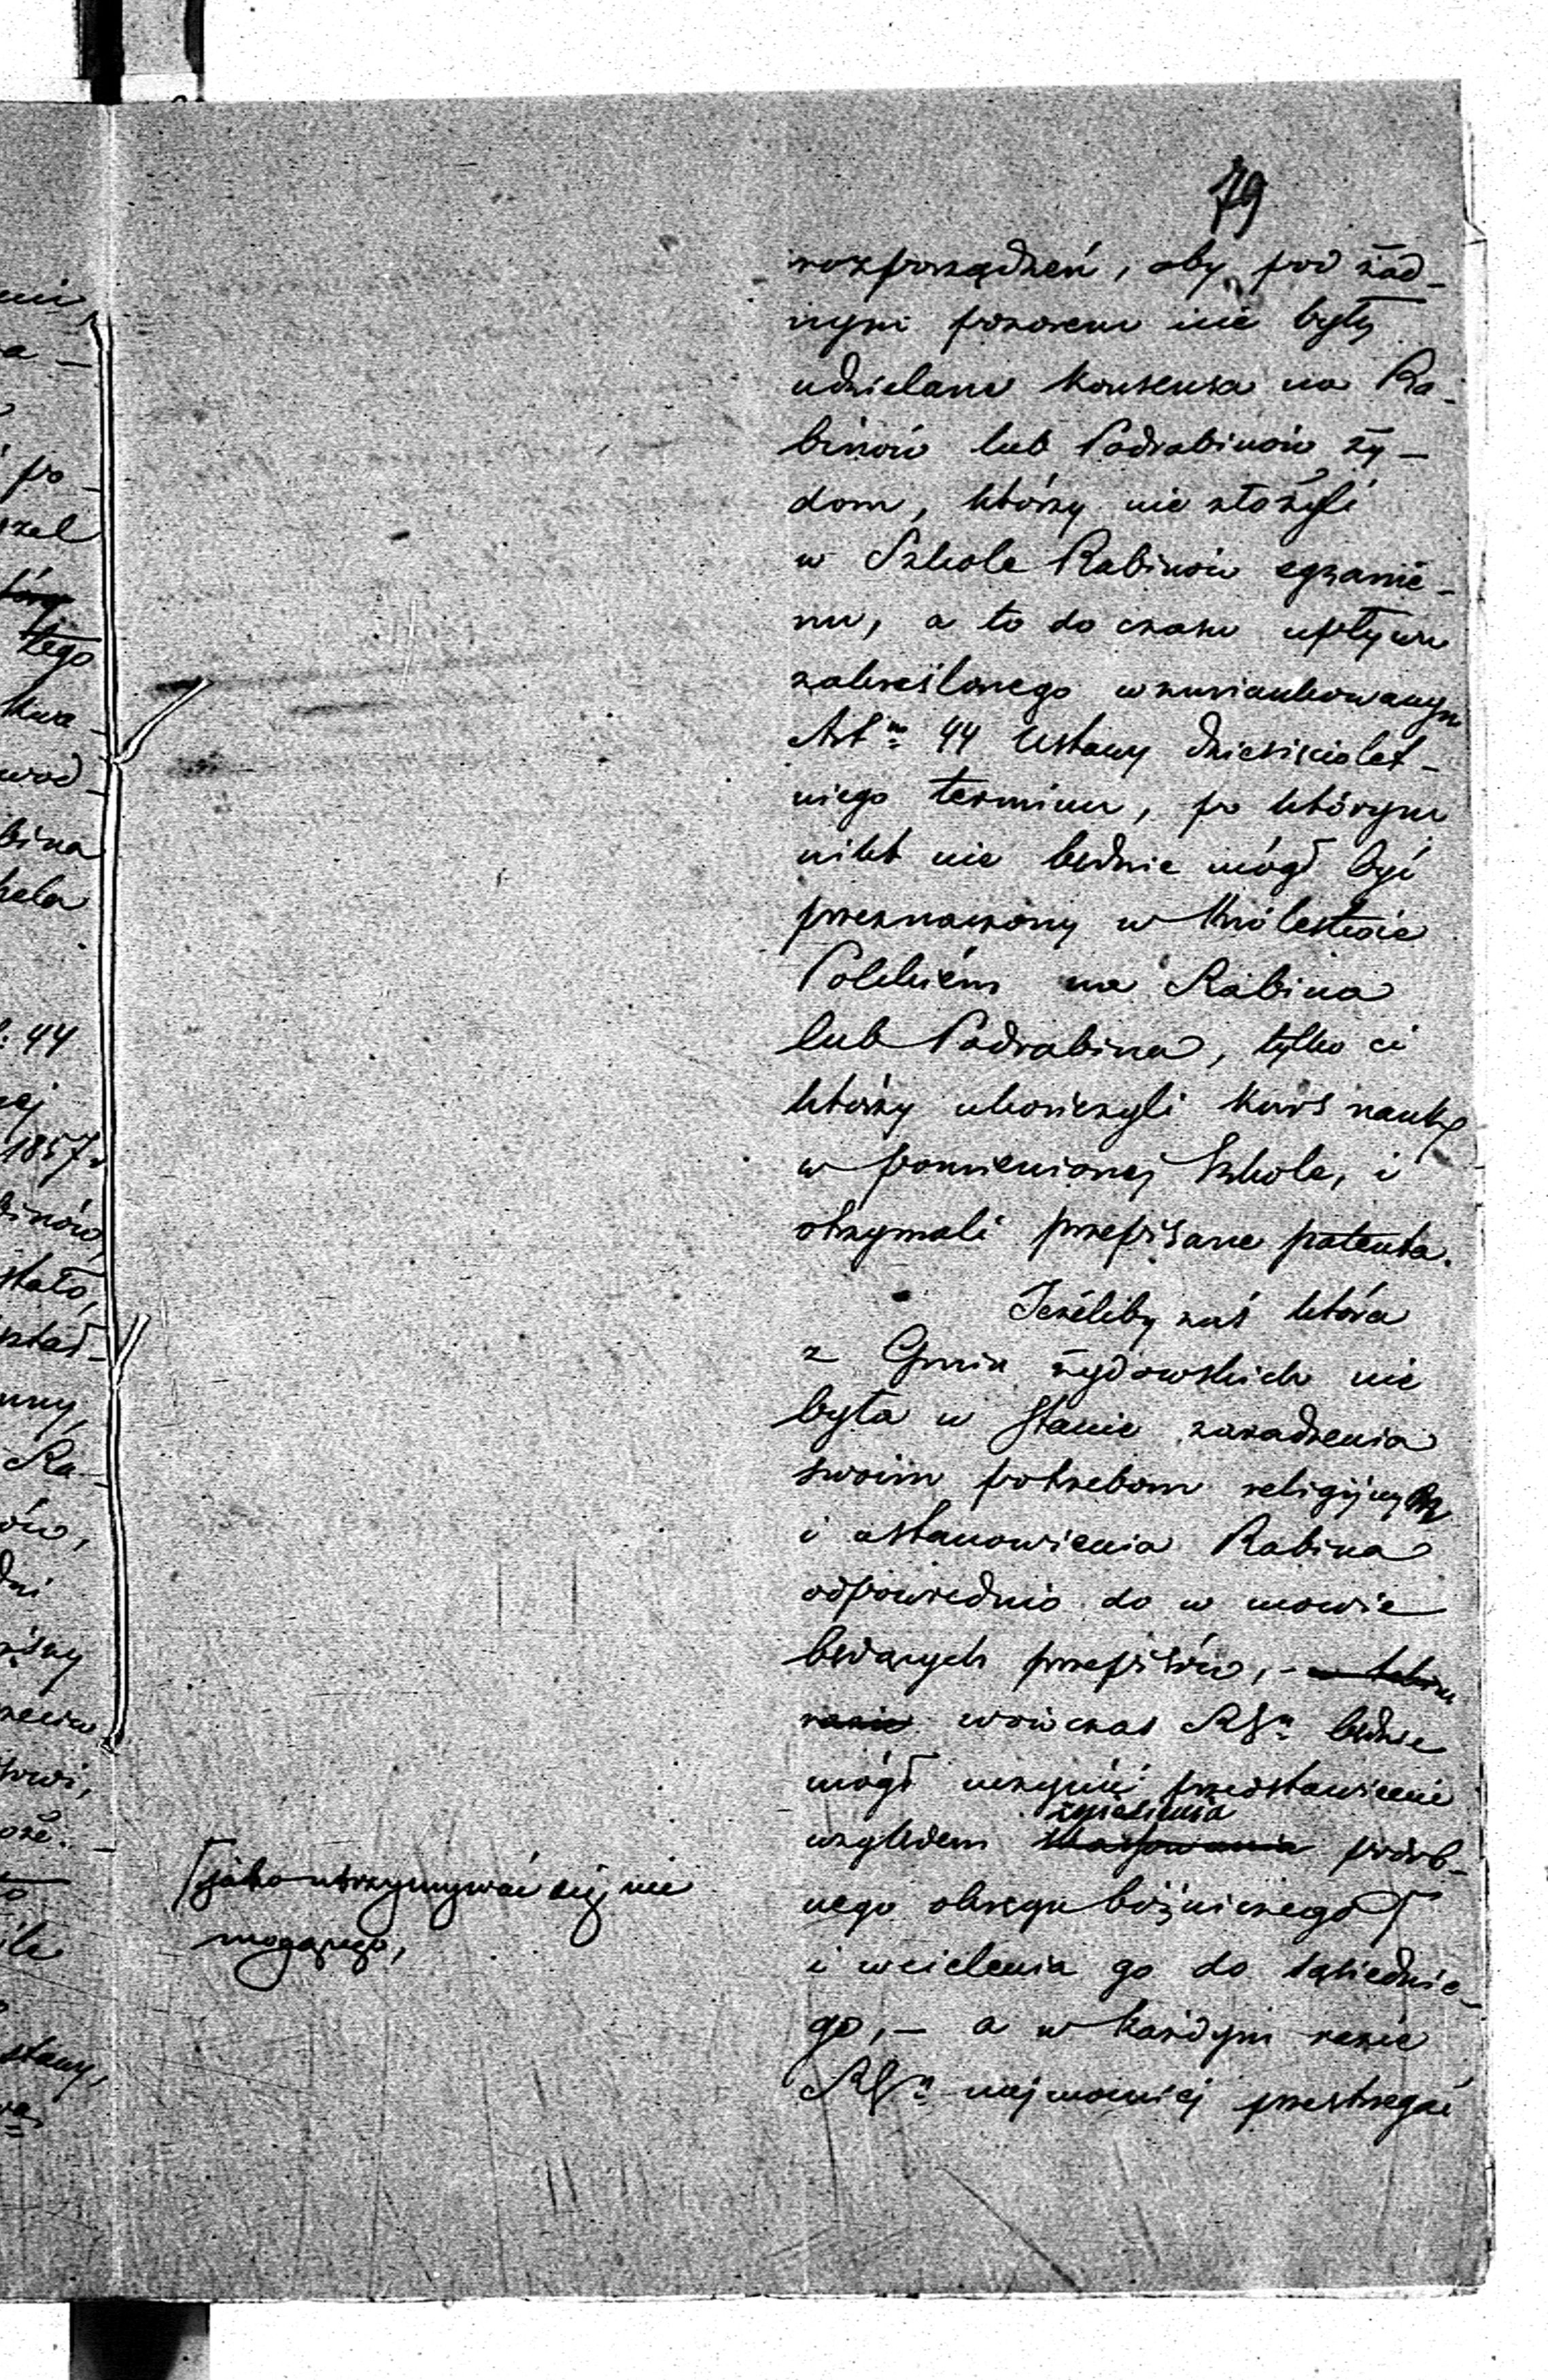 79
rozporządzeń, aby pod żad-
nym pozorem nie były
udzielane konsensa na Ra-
binów lub Podrabinów ży-
dom, którzy nie złożyli
w Szkole Rabinów egzami-
nu, a to do czasu upływu
zakreślonego wzmiankowanym
Artm 44 Ustawy dziesięciolet-
niego terminu, po którym
nikt nie będzie mógł być
przeznaczony w Królestwie
Polskiém na Rabina
lub Podrabina, tylko ci
którzy ukończyli kurs nauk
w pomienionej Szkole, i
otrzymali przepisane patenta.
Jeżéliby zaś która
z Gmin żydowskich nie
była w stanie zaradzenia
swoim potrzebom religijnym
i ustanowienia Rabina
odpowiednio do w mowie
będących przepisów, - w takim
razie wówczas będzie
mógł uczynić przedstawienie
zniesienia
względem skassowania podob-
nego okręgu bóżniczego
jako utrzymywać się nie
mogącego,
i wcielenia go do sąsiednie-
go, - a w każdym razie
najmocniej przestrzegać
ni,
a -
po -
tego
bina
44
1857.
binów,
stało,
Ra-
ów,